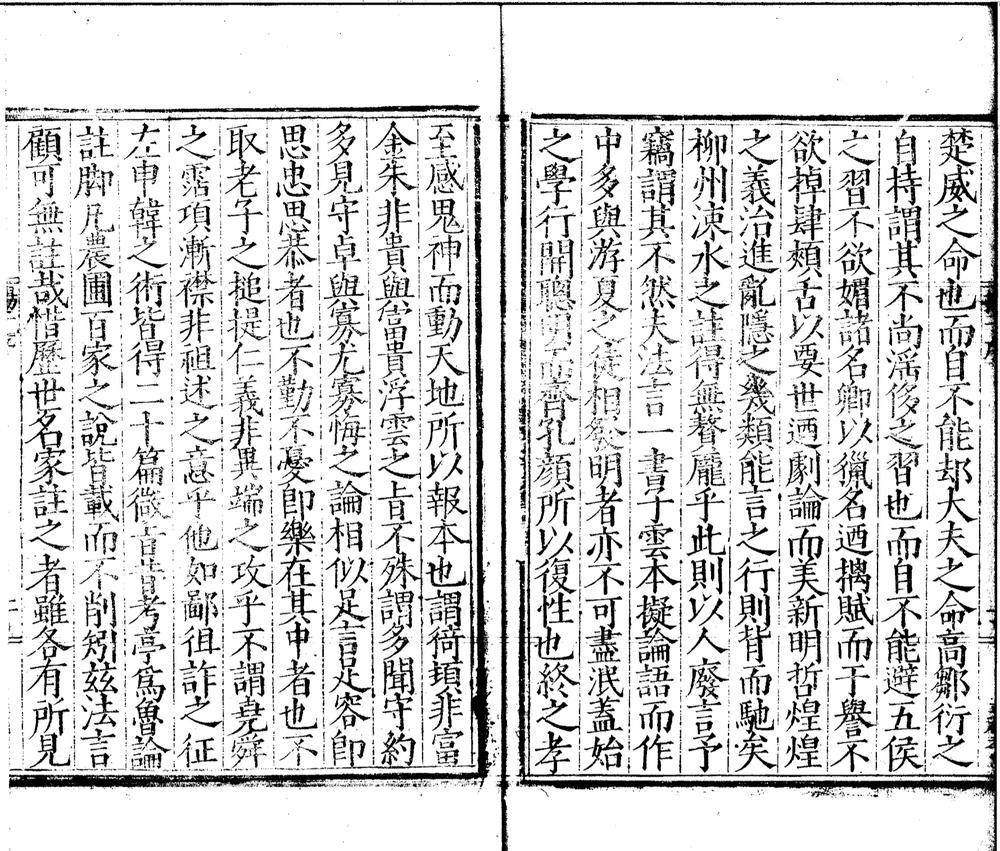 楚威之命也而自不能却大夫之命高鄒衍之
自持謂其不尚滛侈之習也而自不能避五侯
之習不欲媚諸名卿以獵名迺摛賦而干譽不
欲掉肆頰舌以要世迺劇論而美新明哲煌煌
之義治進亂隱之幾類能言之行則背而馳矣
柳州涑水之註得無贅龐乎此則以人廢言予
竊謂其不然夫法言一書子雲本擬論語而作
中多與游夏之徒相發明者亦不可盡泯蓋始
之學行開聰明而齊孔顏所以復性也終之孝
至感鬼神而動天地所以報本也謂猗頓非富
金朱非貴與富貴浮雲之㫖不殊謂多聞守約
多見守卓與寡尤寡悔之論相似足言足容即
思忠思恭者也不勤不憂即樂在其中者也不
取老子之搥提仁義非異端之攻乎不謂堯舜
之霑項漸襟非祖述之意乎他如鄙徂詐之征
左申韓之術皆得二十篇微言昔考亭爲魯論
註脚凡農圃百家之說皆載而不削矧兹法言
顧可無註哉惜歷世名家註之者雖各有所見